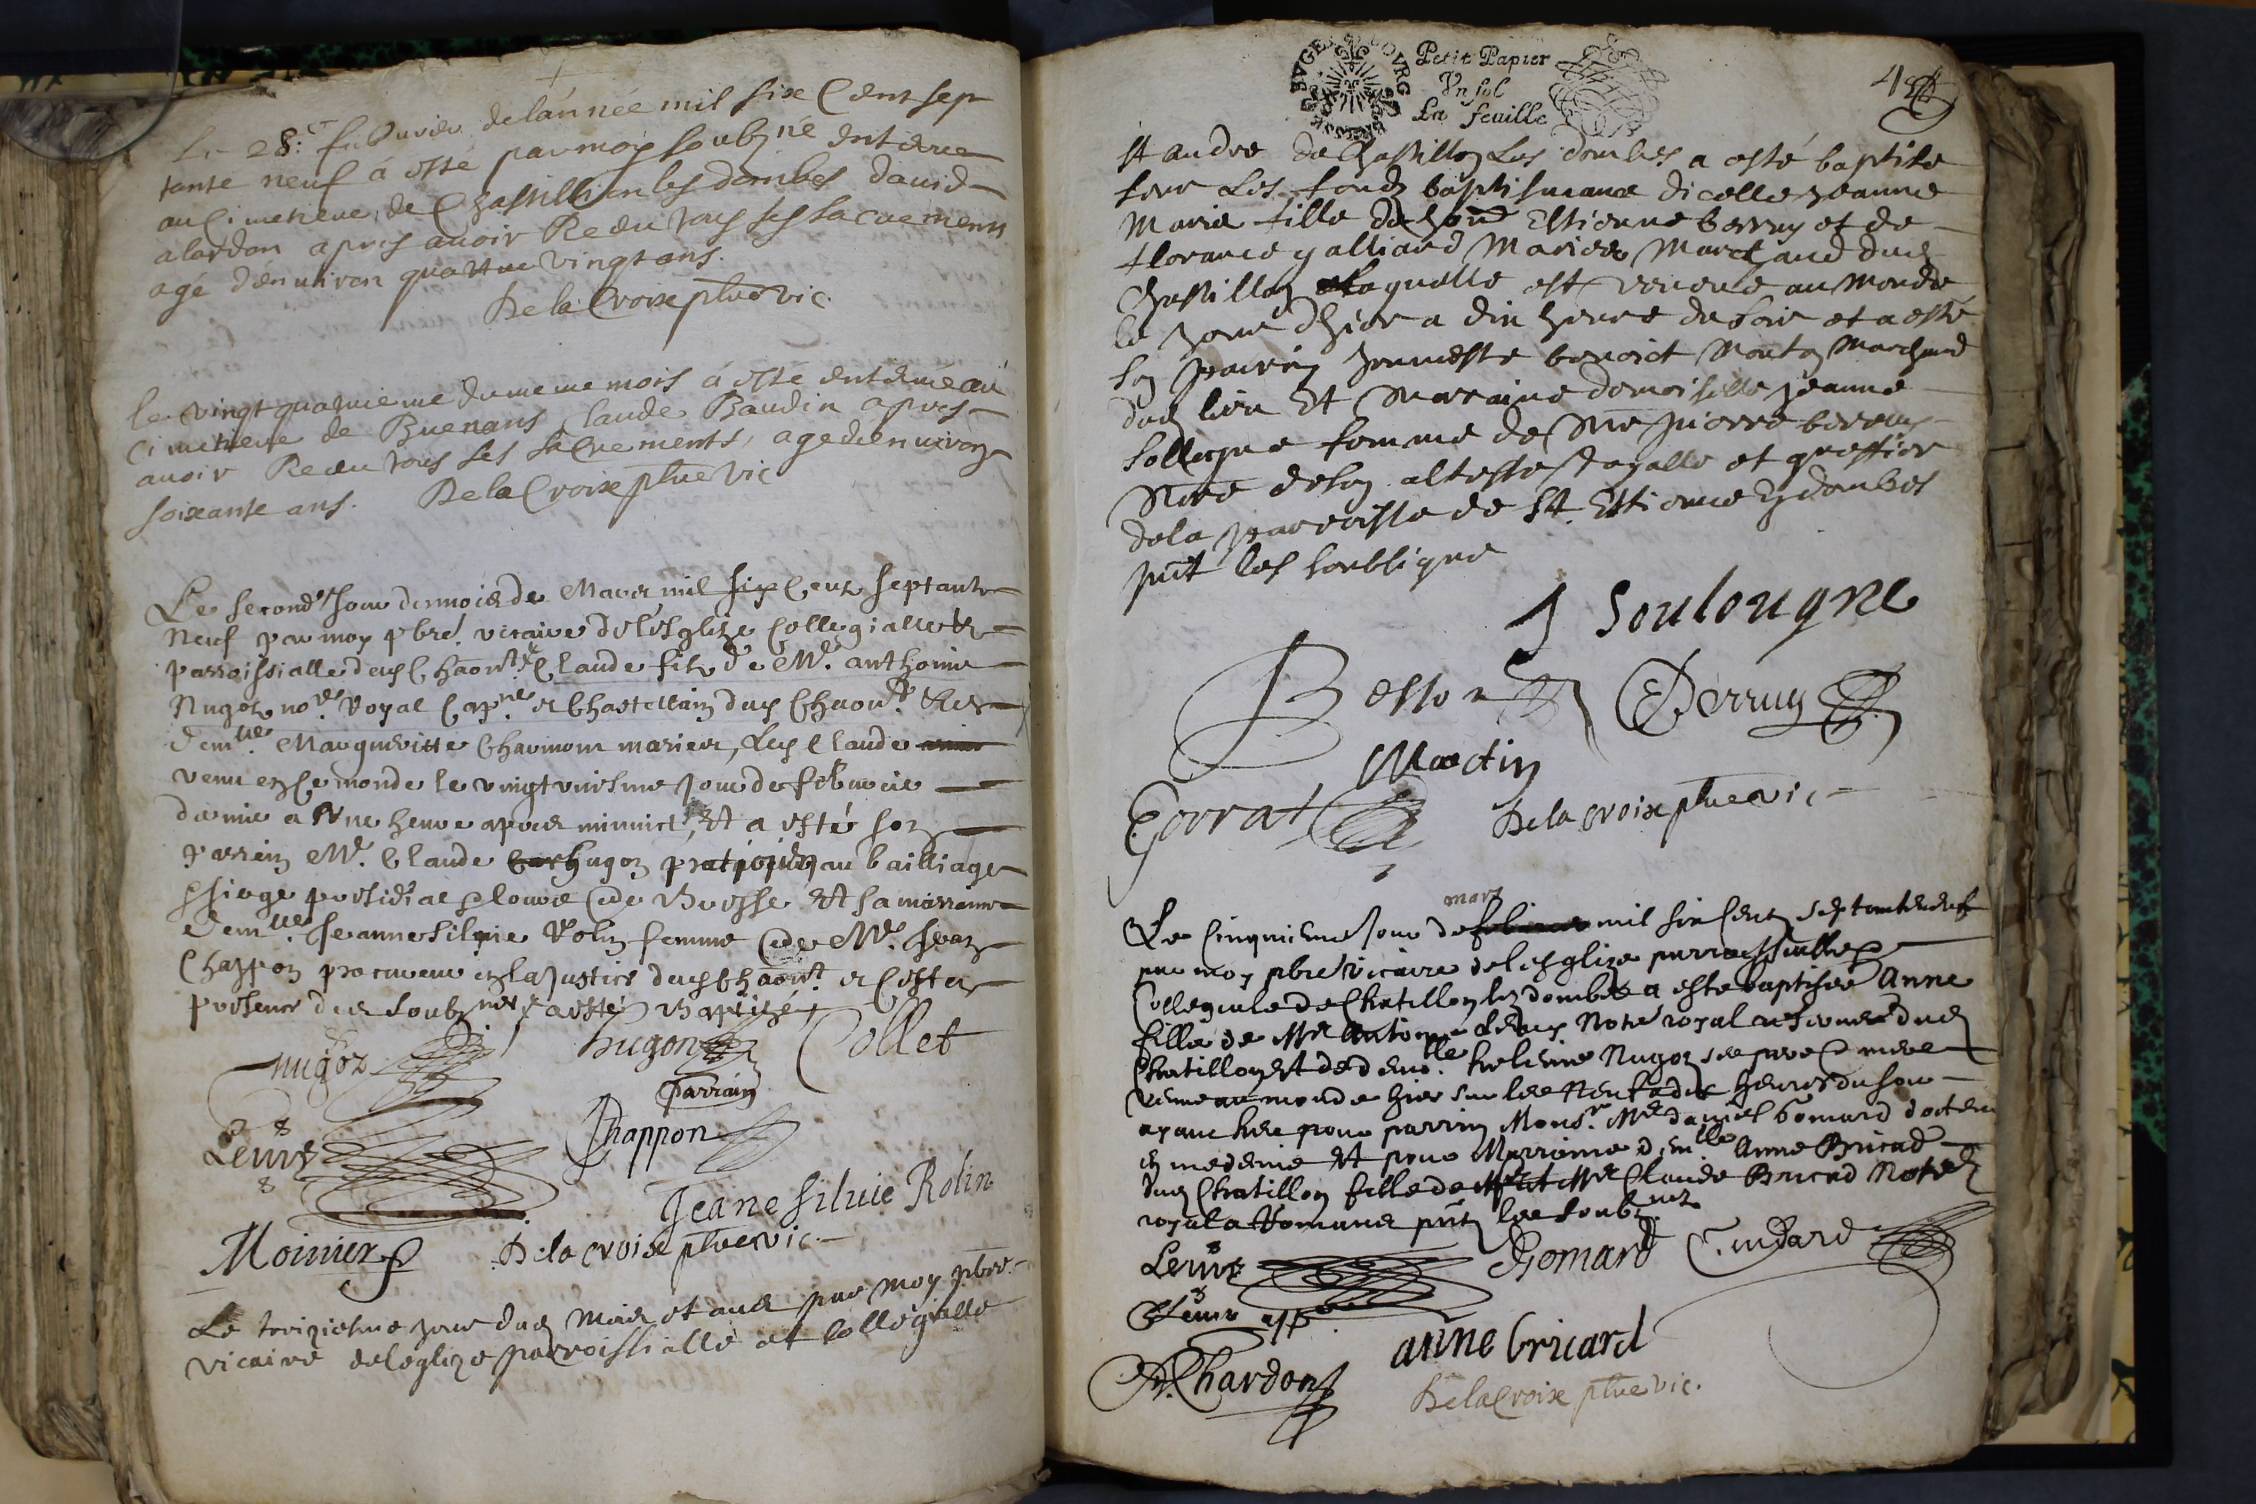 Le 28e. febvrier de l'année mil sixe Cent sep
tante neuf à esté par moy soubzné enterre
au Cimetiere, de Chastillion les dombes david
alardon apres avoir Receu tous ses sacrements
agé d'environ quattre vingt ans.
De la Croix ptre vic.
le vingt quatrieme du meme mois à esté enterré au
Cimetiere de Buenans Claude Baudin apres
avoir Receu tous ses sacrements, agé d'environ
soixante ans. De la Croix ptre vic
Le second Jour du mois de Mars mil six Cent septante
neuf par moy pbre. vicaire de l'esglize Collegialle et
parroissialle dud Chaon.t Claude filz de Mr. anthoine
Nugoz no.re Royal Cap.ne et Chastellain dud Chaon.t et de
dem.lle Marguerite Charmont mariez, led Claude
venu en Ce monde le vingt huitiesme Jour de febvrier
dernier a Une heure apres minuict, Et a esté son
parrain Mr. Claude hugon praticien au bailliage
siege presidial de Bresse Et sa marraine
dem.lle Jeanne silvie Rolin femme de Mr. Jean
Chappon procureur en la Justice dud Chaon.t
presence des soubznez a esté Baptizé
nugoz hugon Collet
parrain
Leurz Chappon
Jeane silvie Rolin
Moinier De la croix ptre vic.
Le troiziesme jour dud Mois et an par moy pbre.
vicaire de leglize parroissialle et Collegialle
BUGEY BOURG BRESSE
Petit Papier
Un sol
La feuille
st andre de Chastillon Les dombes a esté baptise
sur Les fondz baptismaux dicelle jeanne
Marie fille de hon Estienne berruy et de
florance galliard Mariez Marchand dud
Chastillon Laquelle est venue au monde
le jour dhier a dix heure du soir et a esté
son parrin honneste benoict Monton Marchand
dud lieu Et Marraine demoiselle jeanne
femme de Me pierre berruy
Notre de son altesse Royalle et greffier
de la parroisse de St. Estienne en dombes
pnt les soubsigne
J Soulougne
Besson EBerruy
Martin
Gorrat De la croix ptre vic
mars
Le Cinquieme Jour de mil six Cent septante neuf
par moy pbre vicaire de lesglize parroissialle
Collegiale de Chatillon lez dombes a este baptisee Anne
fille de Mr Antoine Leurz Note royal dud
Chatillon et de dem.lle helaine Nugoz ses pere et mere
venue au monde hier sur les neuf a dix heures du soir
ayant heu pour parrin Mons.r Me daniel Gomard docteur
en medecine Et pour Marraine dem.lle Anne Bricad
dud Chatillon fille de Mr Claude Bricad Note
royal a Romans pntz les soubznez
Leurz Gomard
anne bricard
Chardon De la Croix ptre vic.